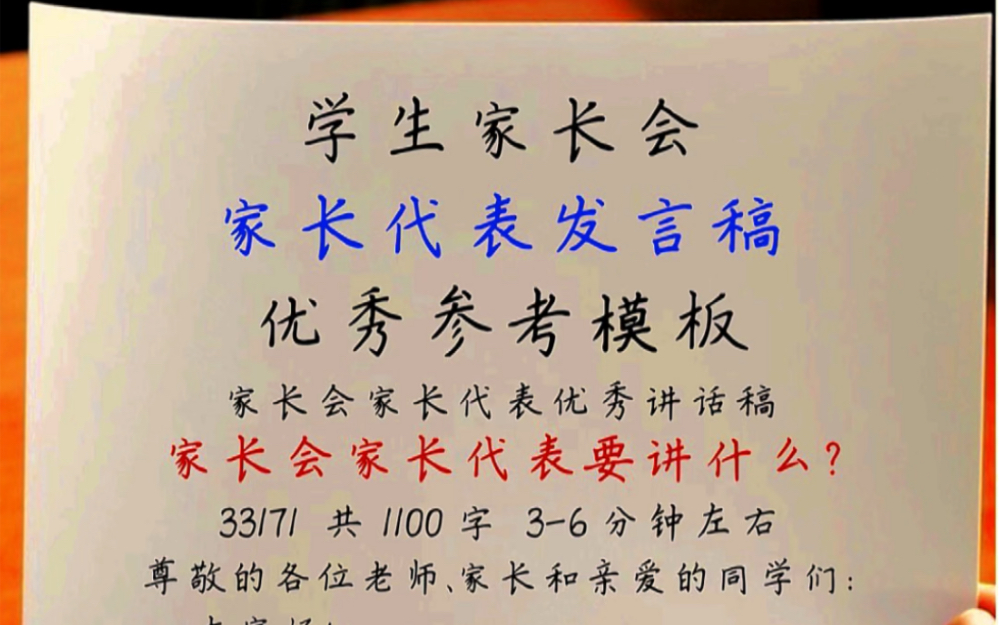 学生家长会
家长代表发言稿
优秀参考模板
家长会家长代表优秀讲话稿
家长会家长代表要讲什么?
33171 共 1100 字 3-6 分钟左右
尊敬的各位老师、家长和亲爱的同学们: